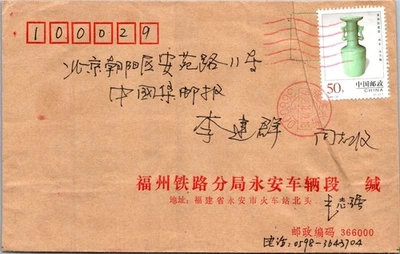 100029
中国邮政
CHINA
50分
北京朝阳区安苑路11号
中国集邮报
李建群 同志收
福州铁路分局永安车辆段 缄
地址：福建省永安市火车站北头
邮政编码 366000
电话：0598-3643704